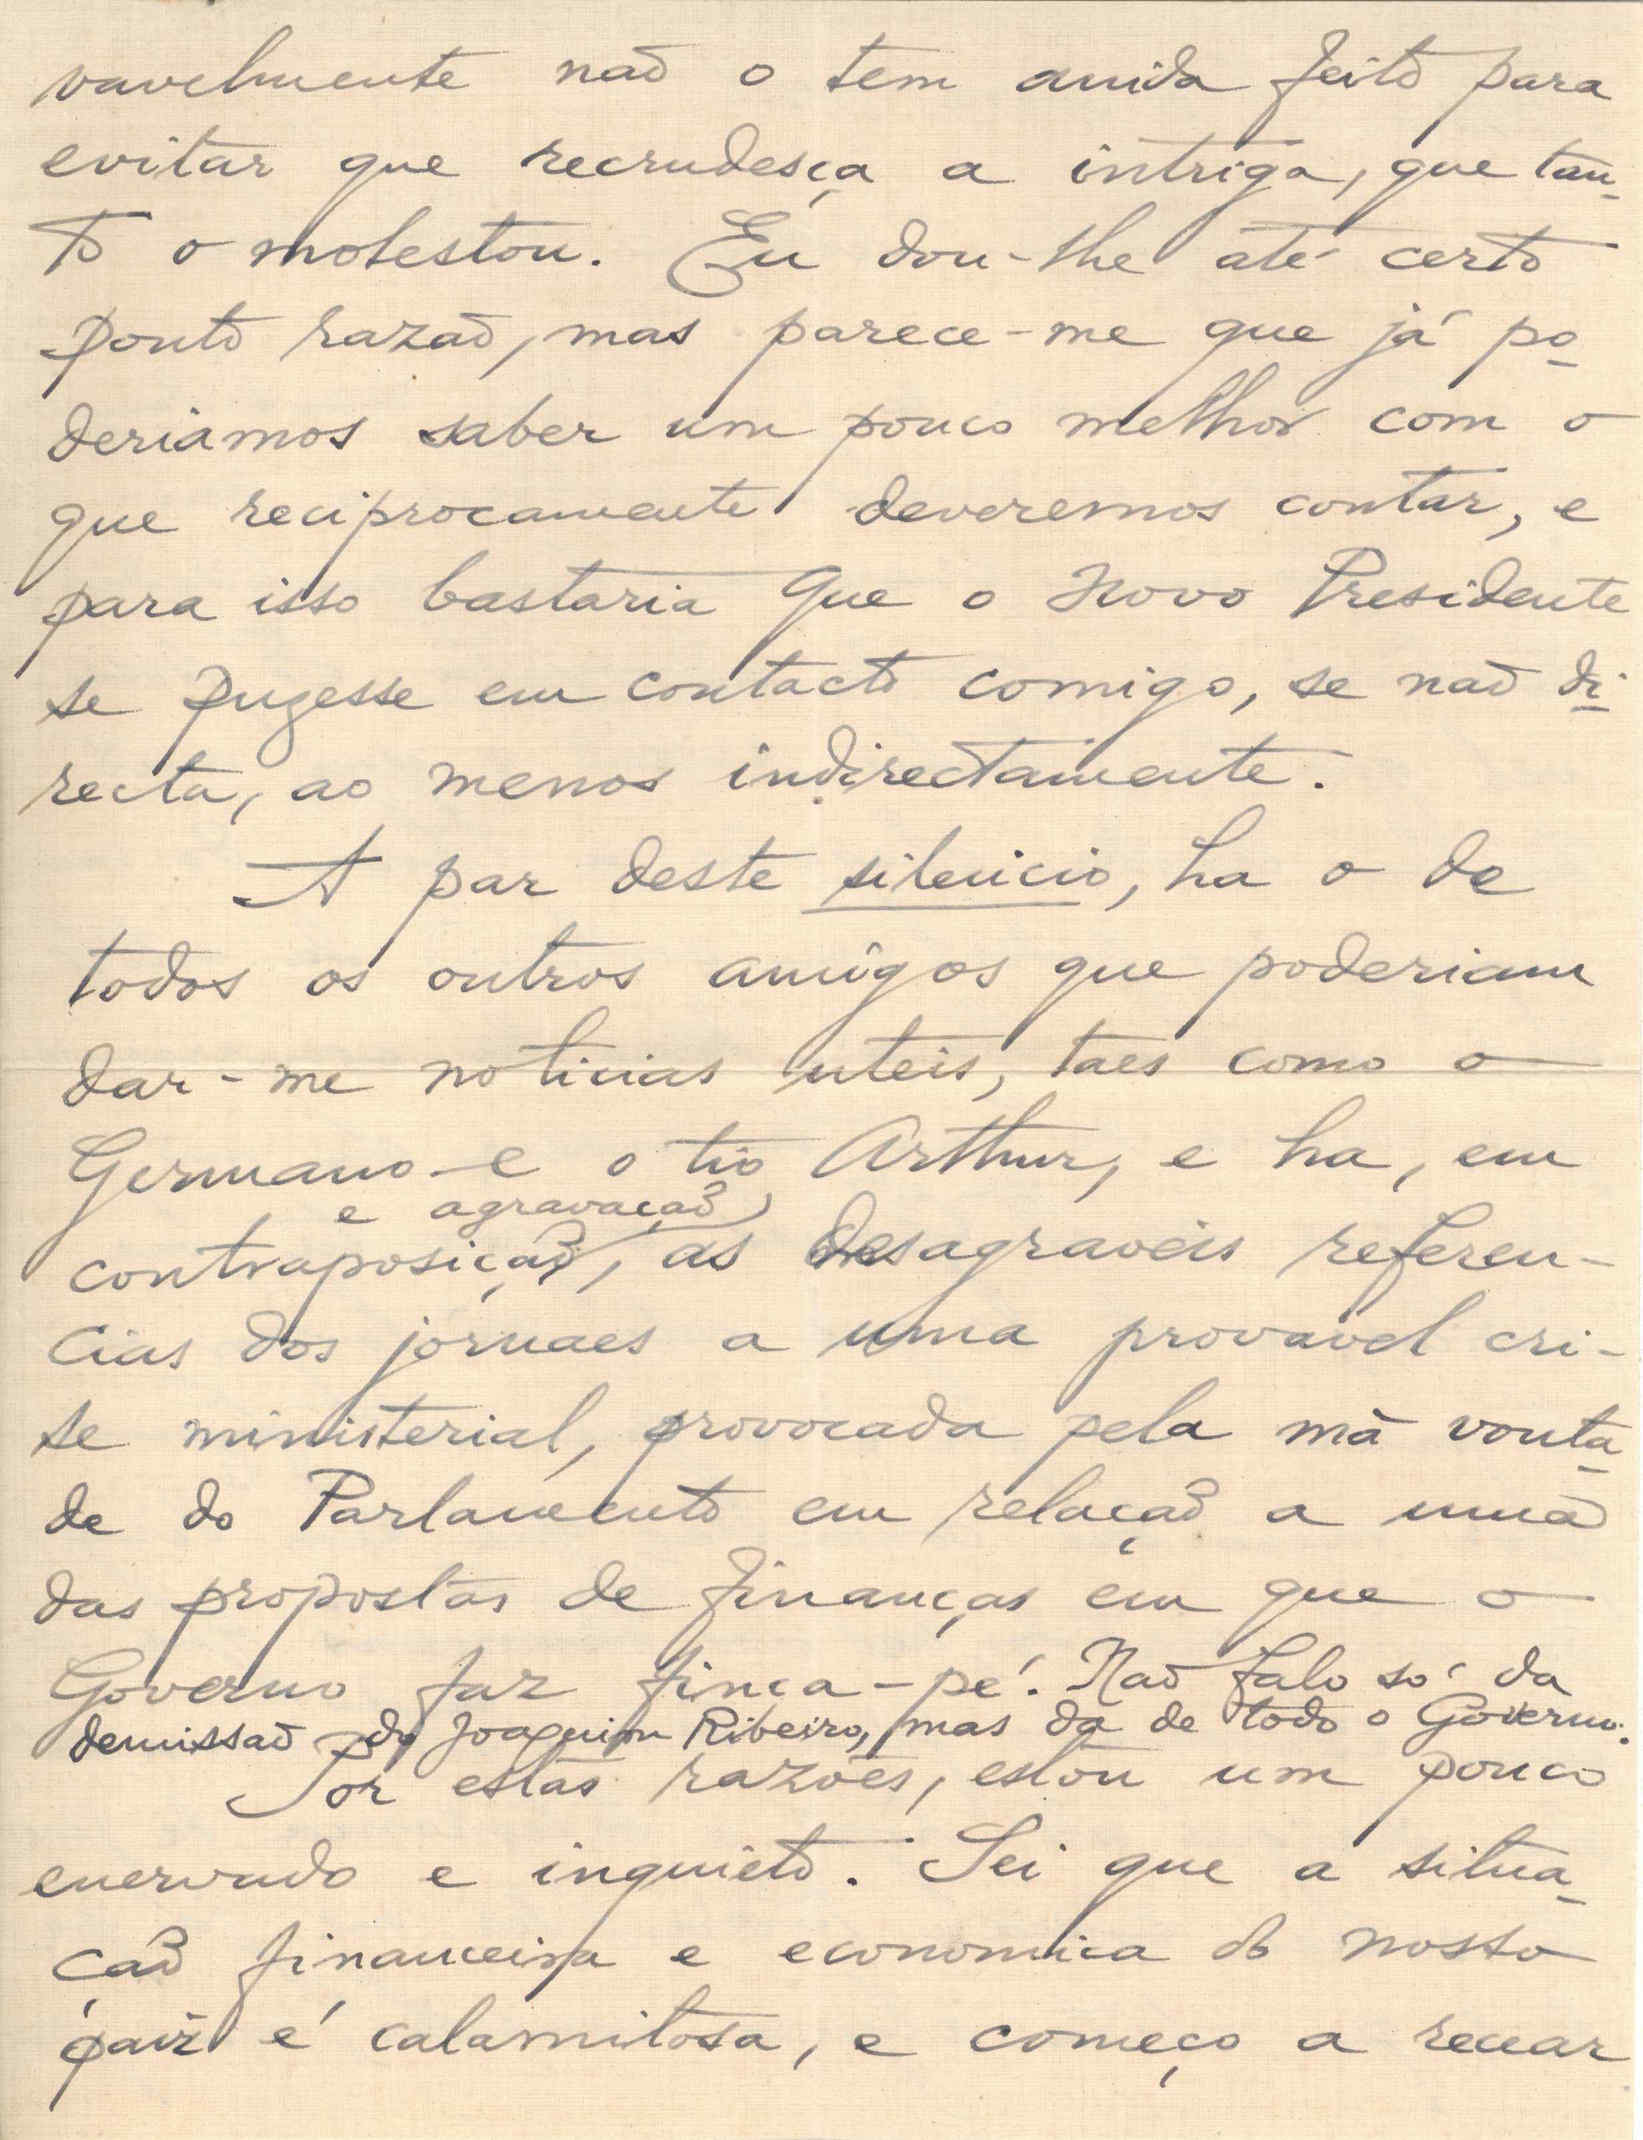 vavelmente não o tem ainda feito para
evitar que recrudesça a intriga, que tan-
to o molestou. Eu dou-lhe até certo
ponto razão, mas parece-me que já po-
deriamos saber um pouco melhor com o
que reciprocamente deveremos contar, e
para isso bastaria que o novo Presidente
se puzesse em contacto comigo, se não di-
recta, ao menos indirectamente.
A par deste silencio, ha o de
todos os outros amigos que poderiam
dar-me noticias uteis, taes como o
Germano e o tio Arthur, e ha, em
e agravação
contraposição, as desagraveis referen-
cias dos jornaes a uma provavel cri-
se ministerial, provocada pela má vonta-
de do Parlamento em relação a uma
das propostas de finanças em que o
Governo faz finca-pé. Não falo só da
demissão do Joaquim Ribeiro, mas da de todo o Governo.
Por estas razões, estou um pouco
enervado e inquieto. Sei que a situa-
ção financeira e economica do nosso
paiz é calamitosa, e começo a recear